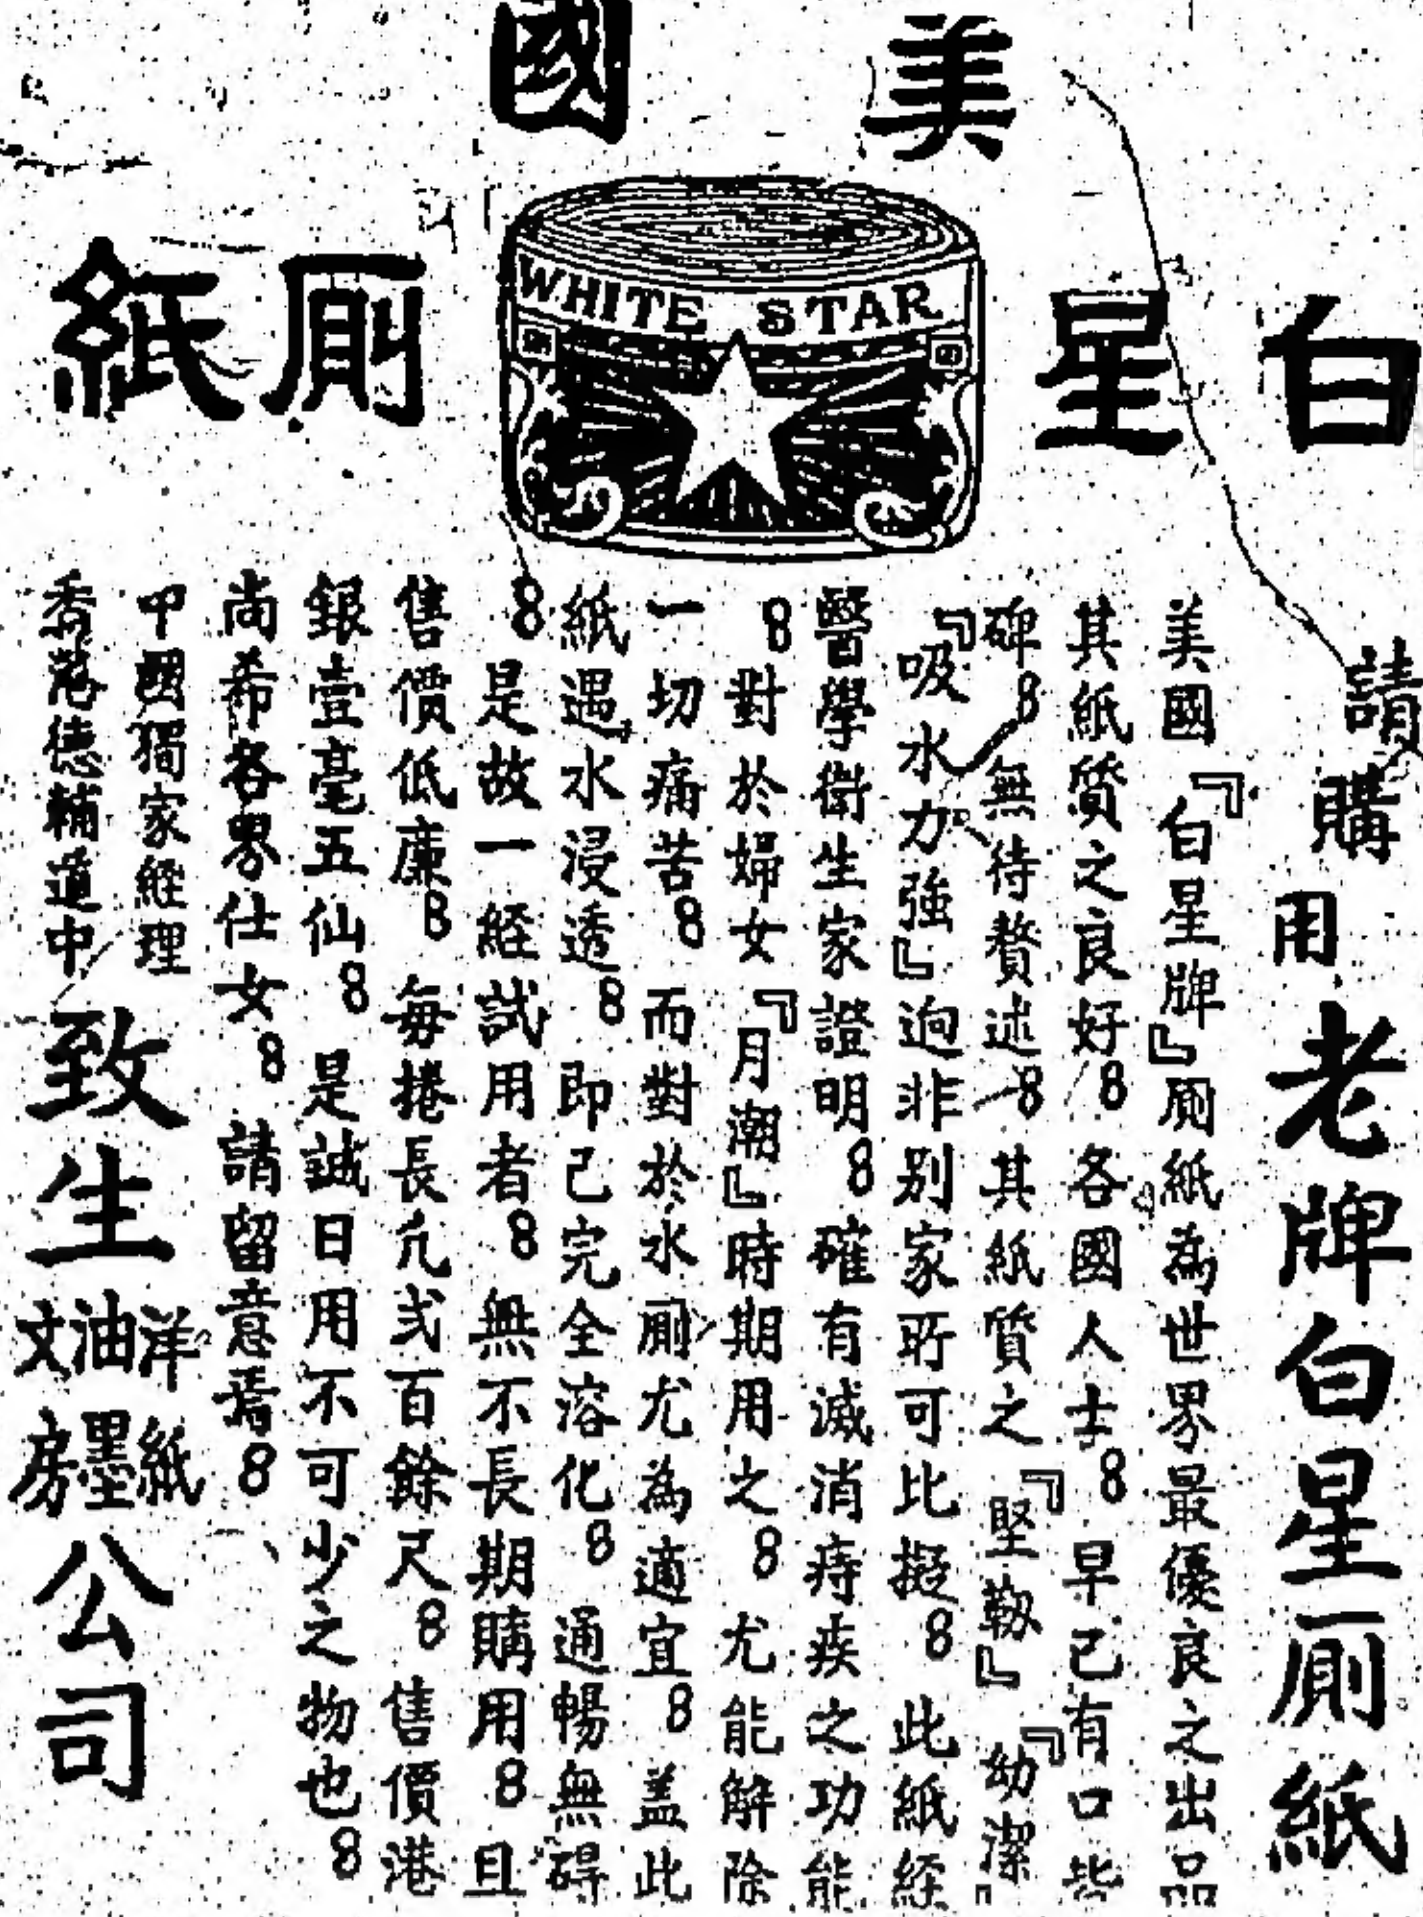 美國
白星廁紙
WHITE STAR
請購用老牌白星廁紙
美國『白星牌』廁紙為世界最優良之出品
其紙質之良好8各國人士8早已有口皆
碑8無待贅述8其紙質之『堅韌』『幼潔』
『吸水力強』迥非別家所可比擬8此紙經
醫學衛生家證明8確有滅消痔疾之功能
8對於婦女『月潮』時期用之8尤能解除
一切痛苦8而對於水廁尤為適宜8蓋此
紙遇水浸透8即已完全溶化8通暢無碍
8是故一經試用者8無不長期購用8且
售價低廉8每捲長凢弍百餘尺8售價港
銀壹毫五仙8是誠日用不可少之物也8
尚希各界仕女8請留意焉8
中國獨家經理
香港德輔道中
致生
洋紙
油墨
文房
公司